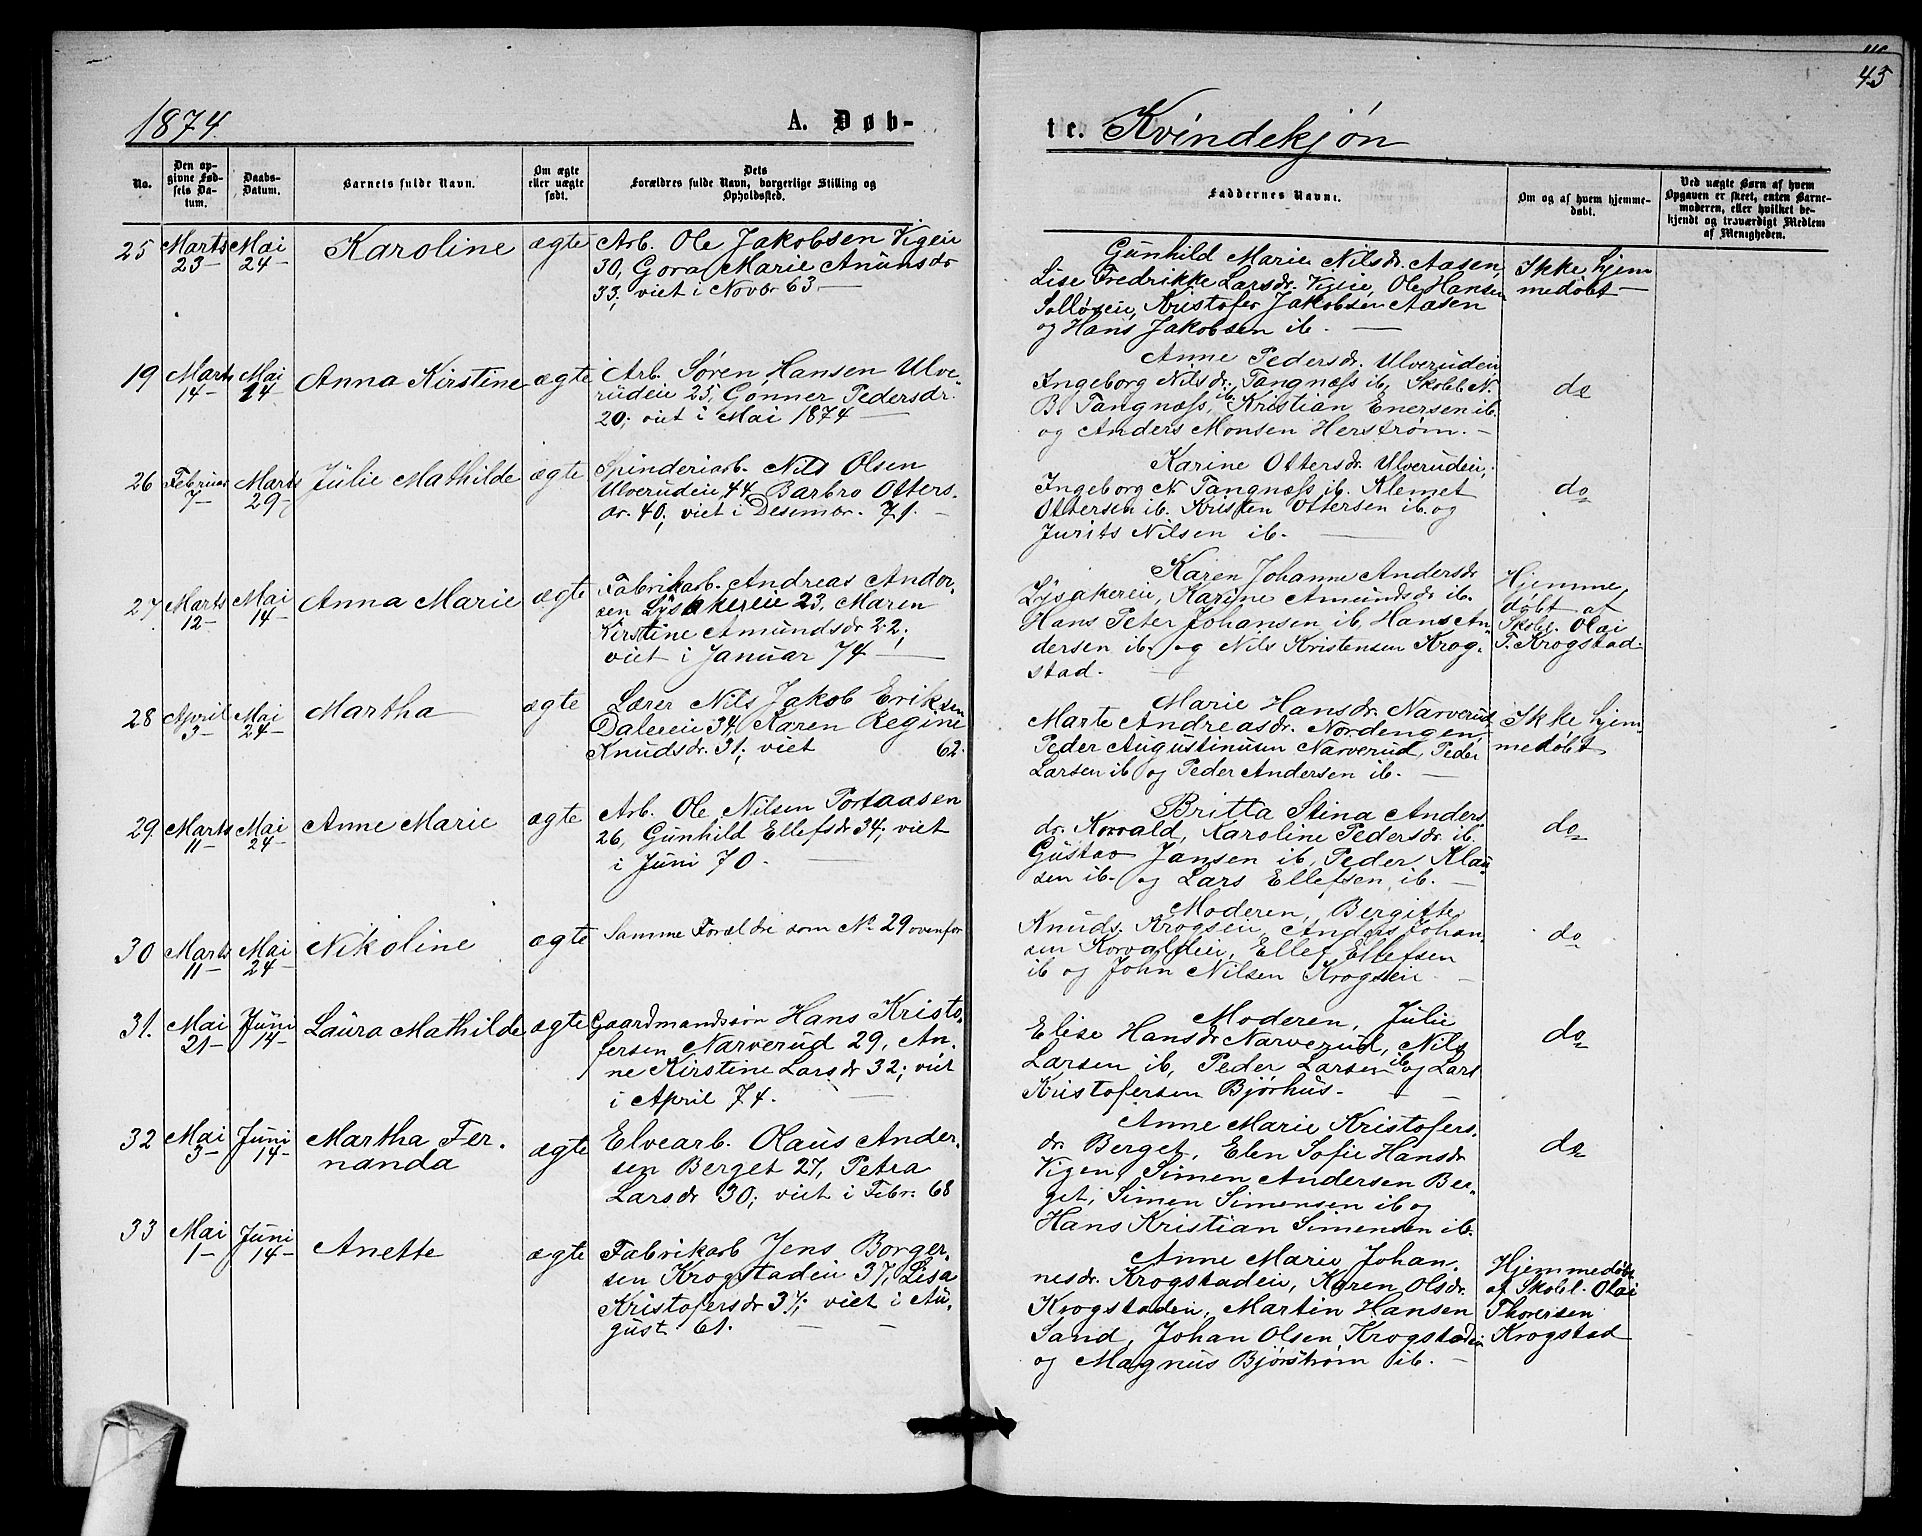 45
1874.
A. Døb-
te. Kvindekjøn
No.
Den op-
givne Fød-
sels Da-
tum.
Daabs-
Datum.
Barnets fulde Navn.
Om ægte
eller uægte
født.
Dets
Forældres fulde Navn, borgerlige Stilling og
Opholdssted.
Faddernes Navne.
Om og af hvem hjemme-
døbt.
Ved uægte Børn af hvem
Opgaven er skeet, enten Barne-
moderen, eller hvilket be-
kjendt og troværdigt Medlem
af Menigheden.
25 Marts 23- Mai 24- Karoline ægte
Arb. Ole Jakobsen Vigeie
30, Gora Marie Anunsdr
33; viet i Novbr 63.
Gunhild Marie Nilsdr. Aasen,
Lise Fredrikke Larsdr. Vigeie, Ole Hansen
Kristofer Jakobsen Aasen
og Hans Jakobsen ib.
Ikke hjem
medøbt
19 Marts 14- Mai 24- Anna Kirstine ægte
Arb. Søren Hansen Ulve-
rudeie 25, Gonner Pedersdr.
20; viet i Mai 1874
Anne Pedersdr. Ulverudeie,
Ingeborg Nilsdr. Tangnæss ib, Skolel. N.
B. Tangnæss, ib. Kristian Enersen ib.
og Anders Monsen Herstrøm.
do
26 Februar 7- Marts 29- Julie Mathilde ægte
Spinderiarb. Nils Olsen
Ulverudeie 44, Barbro Otters-
dr. 40; viet i Desembr. 71.
Karine Ottersdr. Ulverudeie,
Ingeborg N. Tangnæss ib. Klemet
Ottersen ib. Kristen Ottersen ib. og
Jurits Nilsen ib.
do
27 Marts 12- Mai 14- Anna Marie ægte
Fabrikarb. Andreas Ander-
sen Lysakereie 23, Maren
Kirstine Amundsdr 22;
viet i Januar 74
Karen Johanne Andersdr
Lysakereie, Karine Amundsdr ib.
Hans Peter Johansen ib, Hans An-
dersen ib. og Nils Kristensen Krog-
stad.
Hjemme
døbt af
Skolel. Olai
T. Krogstad
28 April 3- Mai 24- Martha ægte
Lærer Nils Jakob Eriksen
Daleeie 34, Karen Regine
Knudsdr. 31; viet 62.
Marie Hansdr. Narverud,
Marte Andreasdr. Nordengen,
Peder Augustinusen Narverud, Peder
Larsen ib og Peder Andersen ib.
Ikke hjem-
medøbt
29 Marts 11- Mai 24- Anne Marie ægte
Arb. Ole Nilsen Portaasen
26, Gunhild Ellefsdr 34; viet
i Juni 70.
Britta Stina Anders
dr. Korvald, Karoline Pedersdr. ib.
Gustav Jansen ib, Peder Klau-
sen ib. og Lars Ellefsen ib.
do
30 Marts 11- Mai 24- Nikoline ægte
Samme Forældre som No 29 ovenfor
Moderen, Bergitte
Knuds. Krogseie, Anders Johan-
sen Korvaldeie, Ellef Ellefsen
ib og John Nilsen Krogseie
do
31. Mai 21- Juni 14- Laura Mathilde ægte
Gaardmandssøn Hans Kristo-
fersen Narverud 29, An-
ne Kirstine Larsdr 32; viet
i April 74.
Moderen, Julie
Elise Hansdr Narverud, Nils
Larsen ib, Peder Larsen ib og Lars
Kristofersen Bjørhus.
do
32 Mai 3- Juni 14- Martha Fer-
nanda ægte
Elvearb. Olaus Ander-
sen Berget 27, Petra
Larsdr 30; viet i Febr. 68
Anne Marie Kristofers-
dr. Berget, Elen Sofie Hansdr
Vigen, Simen Andersen Ber-
get, Simen Simensen ib og
Hans Kristian Simensen ib.
do
33 Mai 1- Juni 14- Anette ægte
Fabrikarb Jens Borger-
sen Krogstadeie 37, Lisa
Kristofersdr 37; viet i Au-
gust 61.
Anne Marie Johan-
nesdr. Krogstadeie, Karen Olsdr.
Krogstadeie, Martin Hansen
Sand, Johan Olsen Krogstadeie
og Magnus Bjørstrøm ib.
Hjemmedøbt
af Skolel. Olai
Thoresen
Krogstad